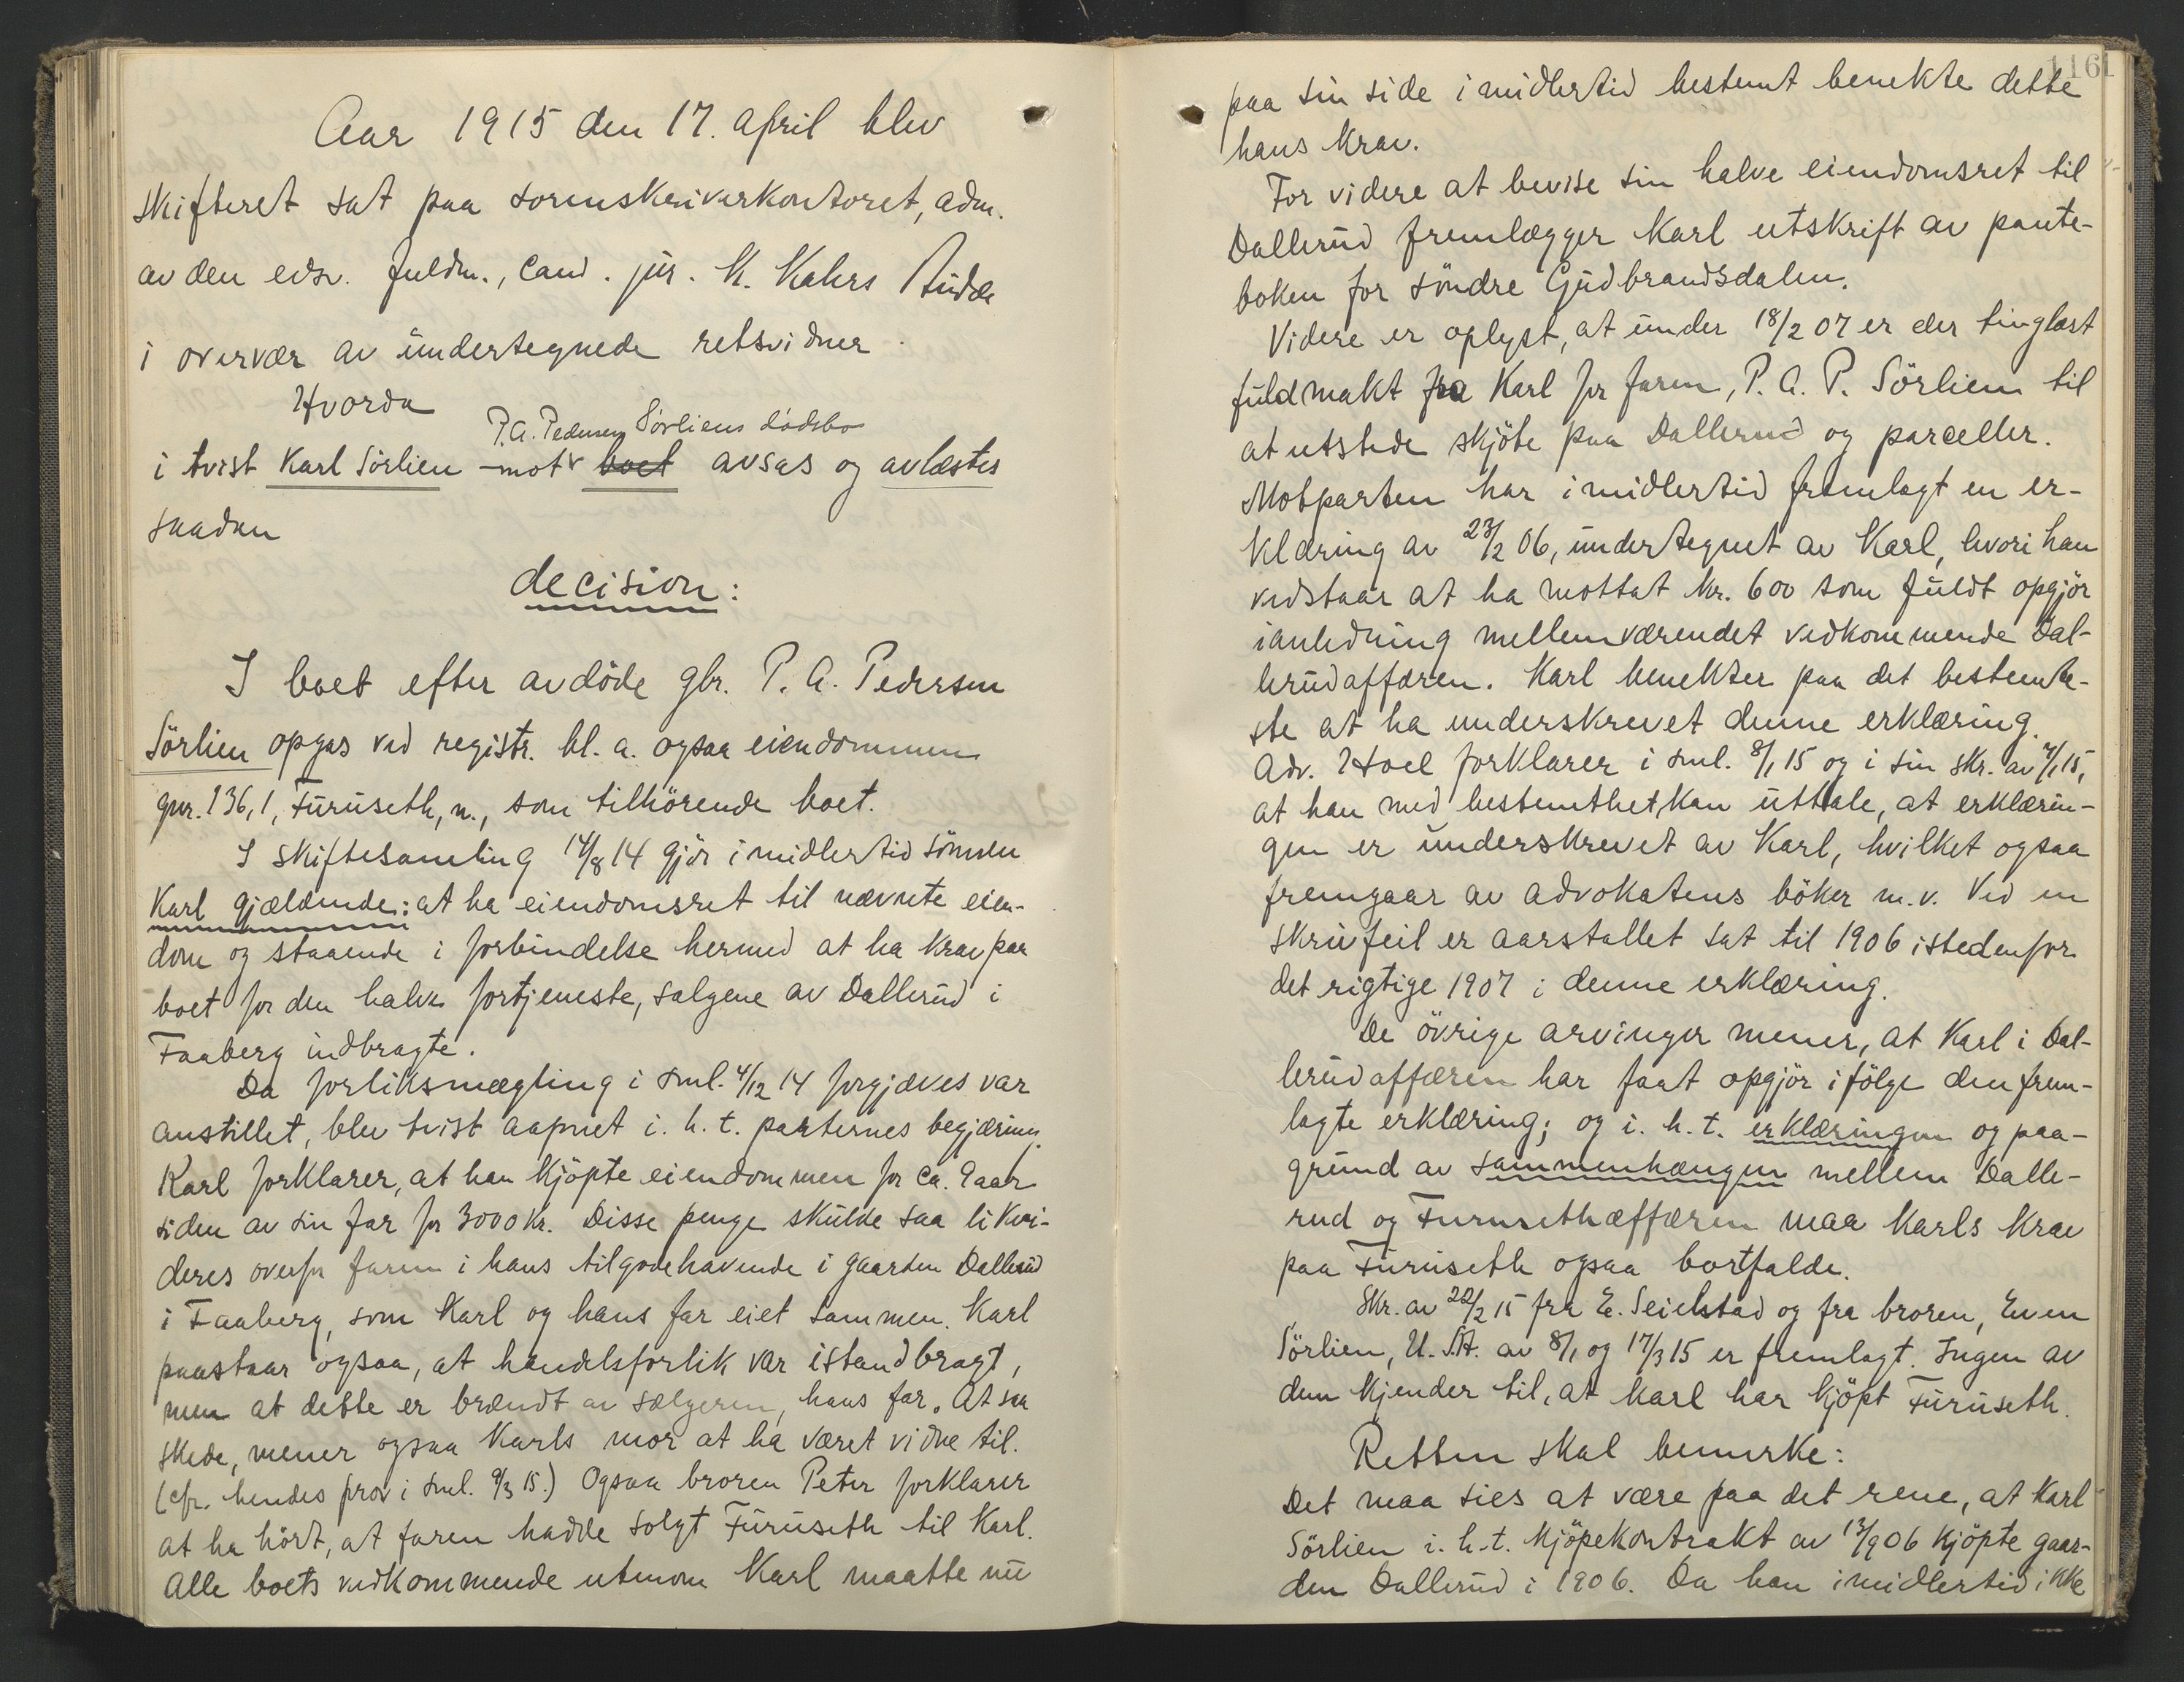 Aar 1915 den 17. april blev
skifteret sat paa sorenskriverkontoret, adm.
av den edsv. fuldm., cand. jur. K. Kahrs Budde
i overvær av undertegnede retsvidner.
Hvorda
P. A. Pedersen Sörliens dödsbo
i tvist Karl Sörlien mot boet avsas og avlæstes
saadan
decision:
I boet efter avdöde gbr. P. A. Pedersen
Sörlien opgas ved registr. bl. a. ogsaa eiendommen
gnr. 136,1, Furuseth, n., som tilhörende boet.
I skiftesamling 14/8 14 gjör imidlertid sönnen
Karl gjældende: at ha eiendomsret til nævnte eien-
dom og staaende i forbindelse hermed at ha krav paa
boet for den halve fortjeneste, salgene av Dallerud i
Faaberg indbragte.
Da forliksmægling i sml. 4/12 14 forgjæves var
anstillet, blev tvist aapnet i. h. t. parternes begjæring.
Karl forklarer, at han kjöpte eiendommen for ca. 9 aar
siden av sin far for 3000 kr. Disse penge skulde saa likvi-
deres overfor faren i hans tilgodehavende i gaarden Dallerud
i Faaberg, som Karl og hans far eiet sammen. Karl
paastaar ogsaa, at handelsforlik var istandbragt,
men at dette er brændt av sælgeren, hans far. At saa
skede, mener ogsaa Karls mor at ha været vidne til.
(cfr. hendes prov i sml. 9/3 15.) Ogsaa broren Peter forklarer
at ha hört, at faren hadde solgt Furuseth til Karl.
Alle boets vedkommende utenom Karl maatte nu
1161
paa sin side imidlertid bestemt benekte dette
hans krav.
For videre at bevise sin halve eiendomsret til
Dallerud fremlægger Karl utskrift av pante-
boken for söndre Gudbrandsdalen.
Videre er oplyst, at under 18/2 07 er der tinglæst
fuldmakt fra Karl for faren, P. A. P. Sörlien til
at utstede skjöte paa Dallerud og parceller.
Motparten har imidlertid fremlagt en er-
klæring av 23/2 06, undertegnet av Karl, hvori han
vedstaar at ha mottat kr. 600 som fuldt opgjör
ianledning mellemværendet vedkommende Dal-
lerudaffæren. Karl benekter paa det bestemte-
ste at ha underskrevet denne erklæring.
Adv. Hoel forklarer i sml. 8/1 15 og i sin skr. av 7/1 15,
at han med bestemthet kan uttale, at erklærin-
gen er underskrevet av Karl, hvilket ogsaa
fremgaar av advokatens böker m. v. Ved en
skrivfeil er aarstallet sat til 1906 istedenfor
det rigtige 1907 i denne erklæring.
De övrige arvinger mener, at Karl i Dal-
lerudaffæren har faat opgjör ifölge den frem-
lagte erklæring; og i. h. t. erklæringen og paa-
grund av sammenhængen mellem Dalle-
rud og Furusethæffæren maa Karls krav
paa Furuseth ogsaa bortfalde.
Skr. av 22/2 15 fra E. Seielstad og fra broren, Even
Sörlien, U. S. A. av 8/1 og 17/3 15 er fremlagt. Ingen av
dem kjender til, at Karl har kjöpt Furuseth.
Retten skal bemerke:
Det maa sies at være paa det rene, at Karl
Sörlien i. h. t. kjöpekontrakt av 13/9 06 kjöpte gaar-
den Dallerud i 1906. Da han imidlertid ikke